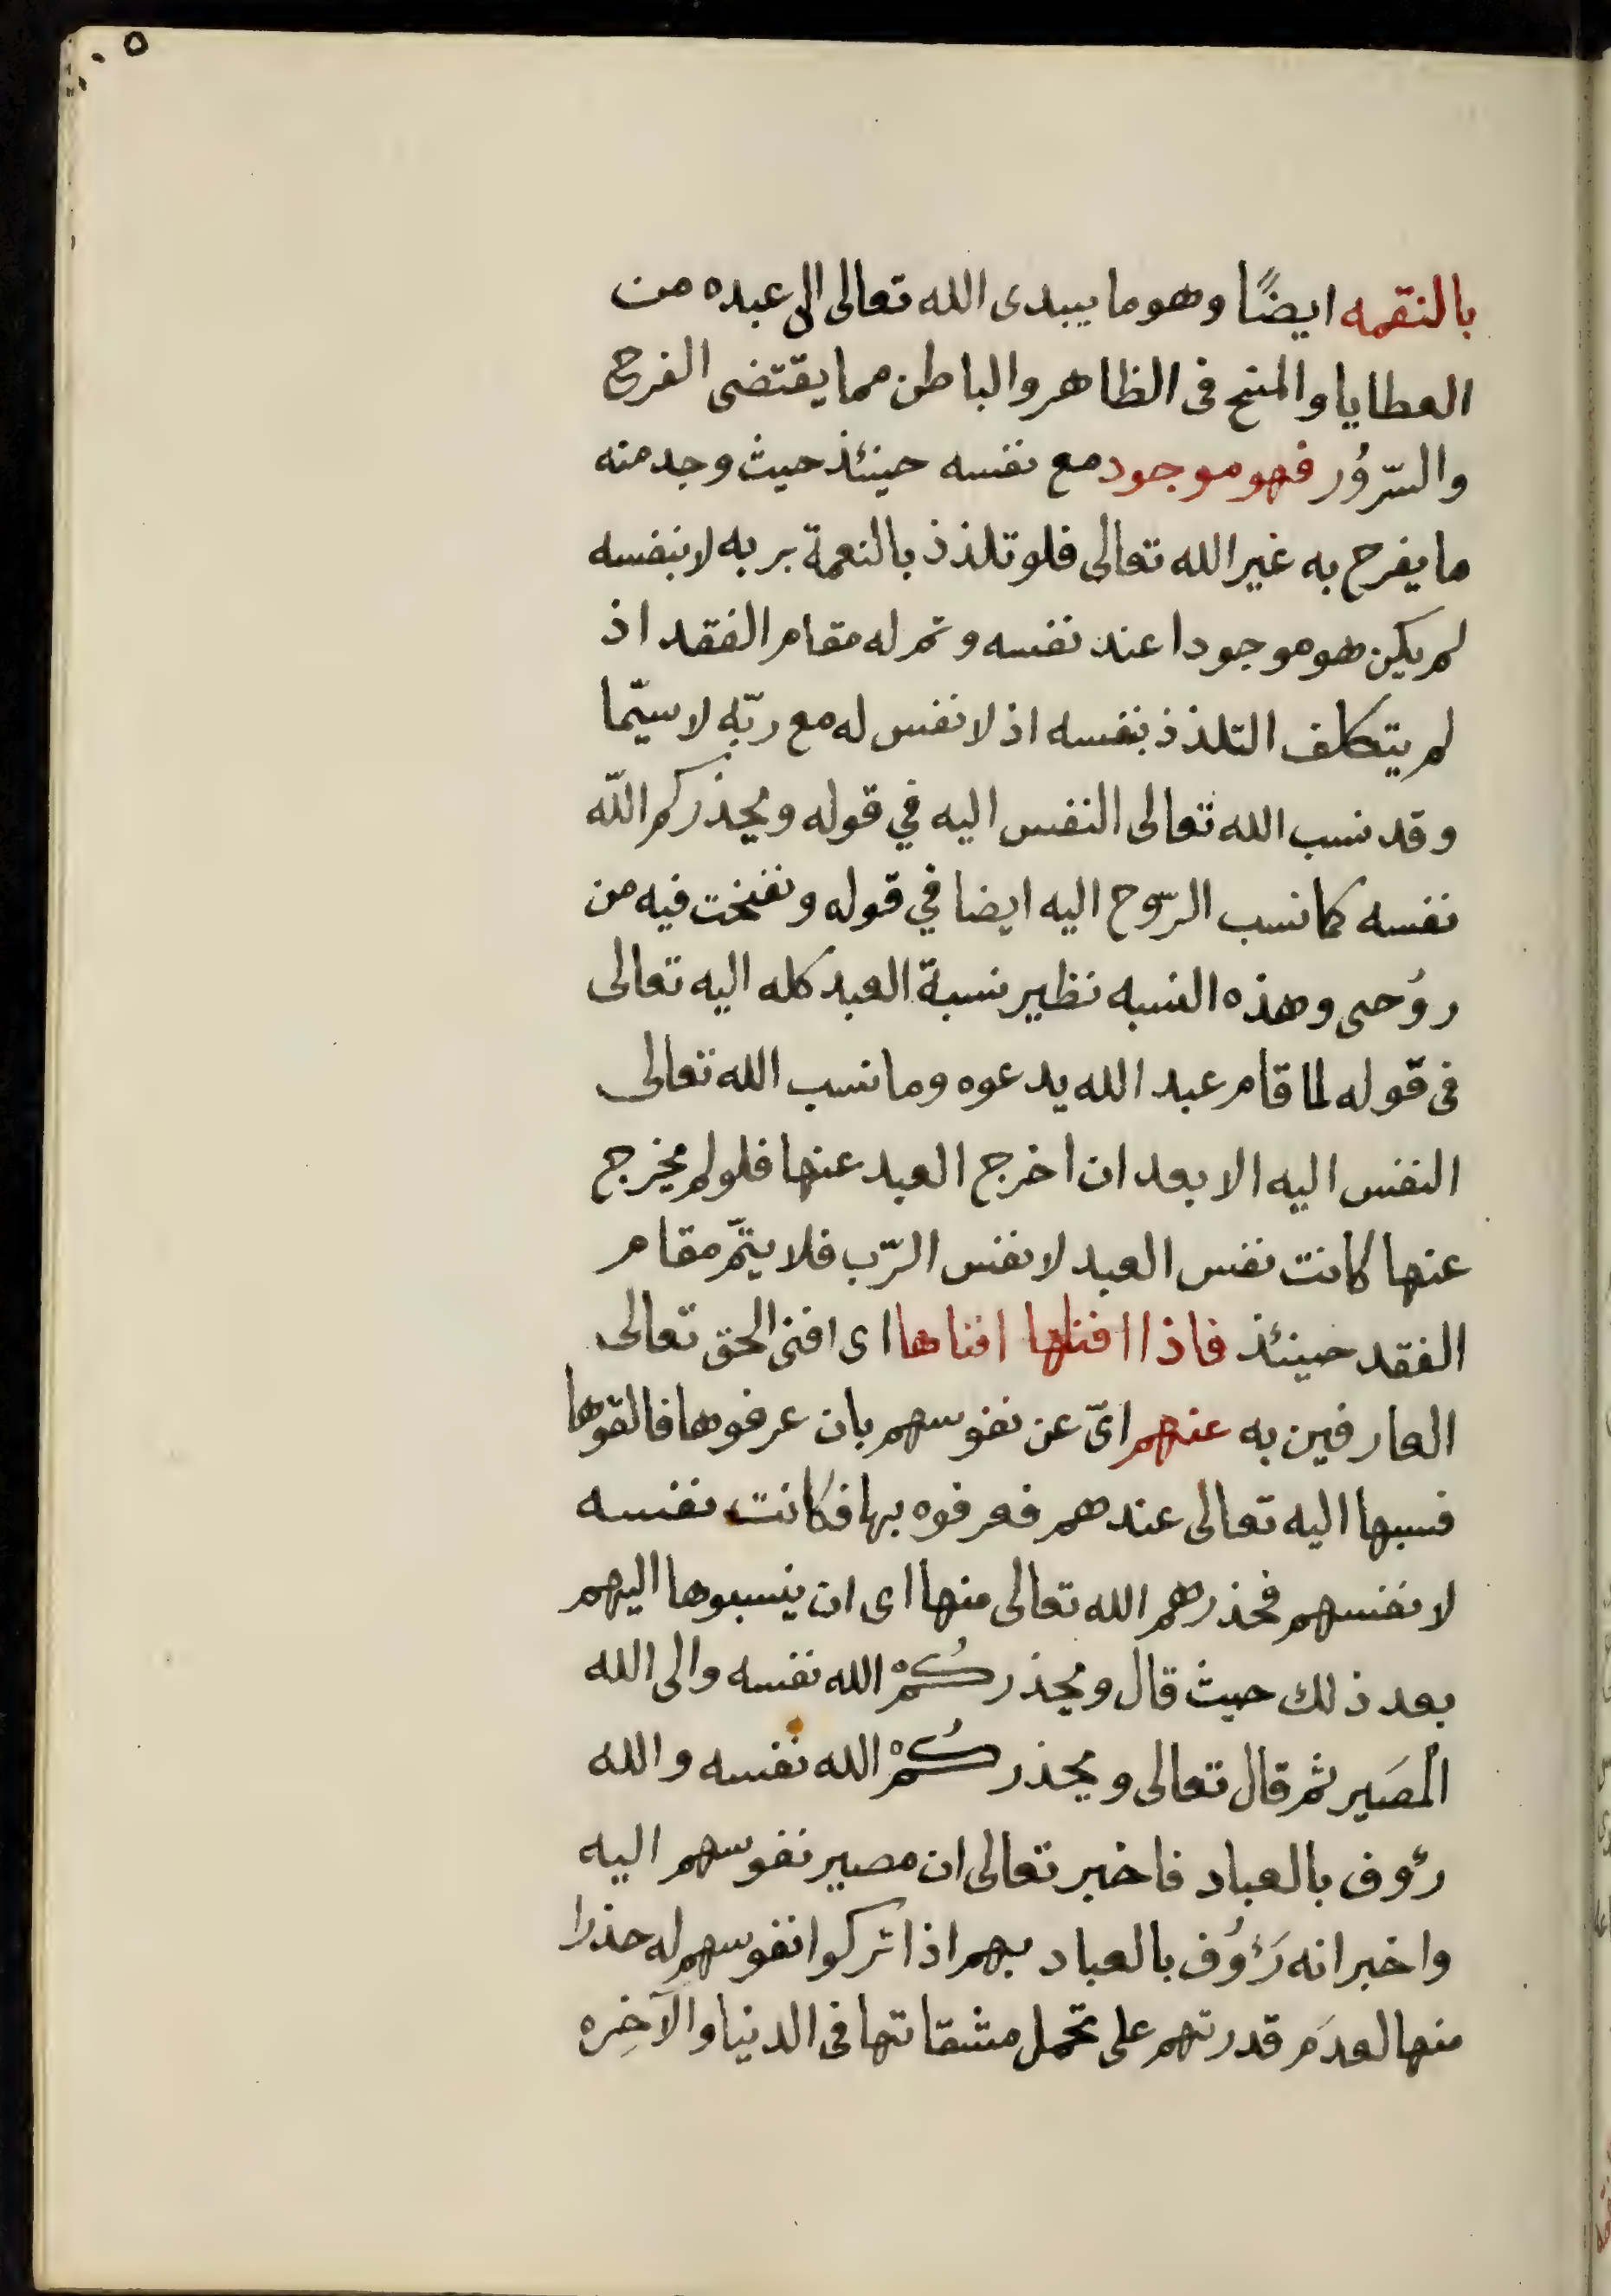 بالنقمه ايضًا وهو ما يبدى الله تعالى الى عبده من
العطايا والمنح فى الظاهر والباطن مما يقتضى الفرح
والسّرُور فهو موجود مع نفسه حينئذ حيث وجد منه
ما يفرح به غير الله تعالى فلو تلذذ بالنعمة بربه لا بنفسه
لم يكن هو موجودا عند نفسه وتم له مقام الفقد اذ
لم يتكلف التلذذ بنفسه اذ لا نفس له مع ربّه لا سيّما
وقد نسب الله تعالى النفس اليه في قوله ويحذركم اللّه
نفسه كما نسب الرّوح اليه ايضا في قوله ونفخت فيه من
رُوحى وهذه النسبه نظير نسبة العبد كله اليه تعالى
فى قوله لما قام عبد الله يدعوه وما نسب الله تعالى
النفس اليه الا بعد ان اخرج العبد عنها فلو لم يخرج
عنها كانت نفس العبد لا نفس الرّب فلا يتمّ مقام
الفقد حينئذ فاذا افناها افناها اى افنى الحق تعالى
العارفين به عنهم اىّ عن نفوسهم بان عرفوها فالقوها
فسبها اليه تعالى عندهم فعرفوه بها فكانت نفسه
لا نفسهم فحذرهم الله تعالى منها اى ان ينسبوها اليهم
بعد ذلك حيث قال ويحذركُمْ الله نفسه والى الله
الْمصَير ثم قال تعالى ويحذركُمْ الله نفسه والله
رؤف بالعباد فاخبر تعالى ان مصير نفوسهم اليه
واخبر انه رَؤُف بالعباد بهم اذا تركوا نفوسهم له حذرا
منها لعدَم قدرتهم على تحمل مشقاتها فى الدنيا والآخِره